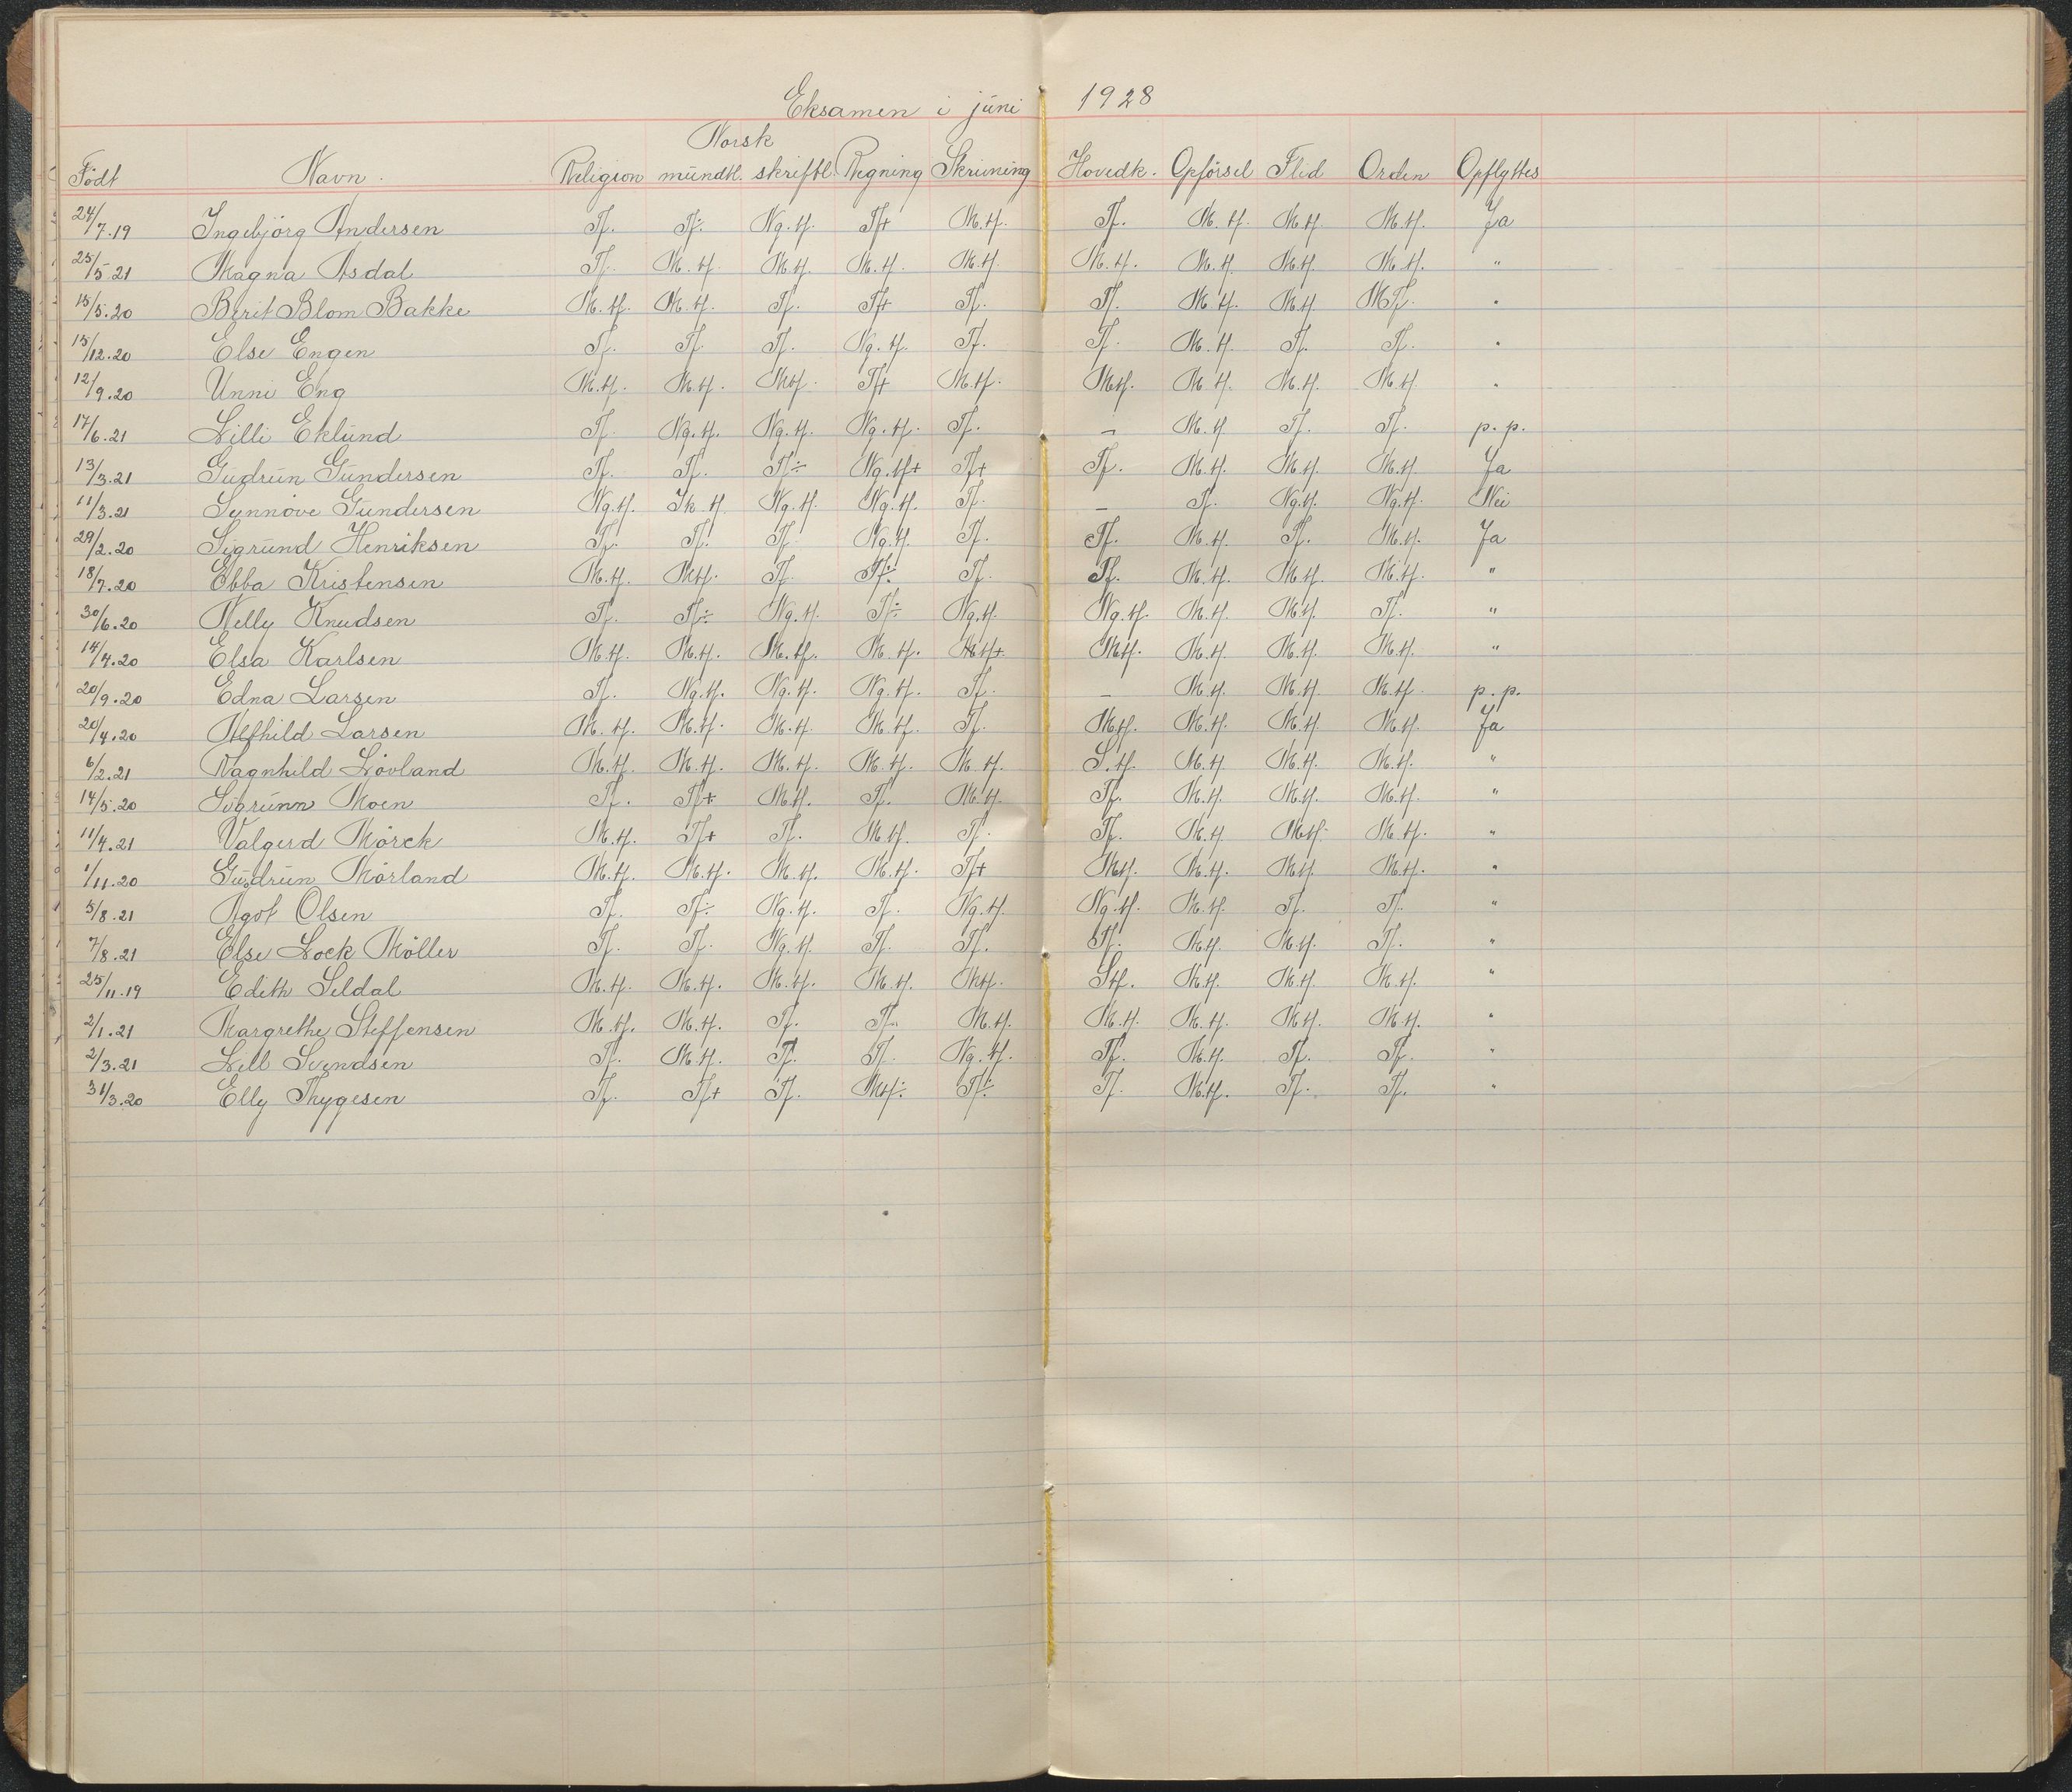 Eksamen i juni 1928
Norsk
Født Navn. Religion mundtl. skriftl. Regning Skrivning Hovedk. Opførsel Flid Orden Opflyttes
24/7.19 Ingebjörg Andersen Tf. Tf÷ Ng.tf. Tf+ M.tf. Tf. M.tf. M.tf. M.tf. Ja
25/5.21 Magna Asdal Tf. M.tf. M.tf. M.tf. M.tf. M.tf. M.tf. M.tf. M.tf. "
15/5.20 Berit Blom Bakke M.tf. M.tf. Tf. Tf+ Tf. Tf. M.tf. M.tf. MTf. "
15/12.20 Else Engen Tf. Tf. Tf. Ng.tf. Tf. Tf. M.tf. Tf. Tf. "
12/9.20 Unni Eng M.tf. M.tf. Mtf. Tf+ M.tf. Mtf. M.tf. M.tf. M.tf. "
17/6.21 Lilli Eklund Tf. Ng.tf. Ng.tf. Ng.tf. Tf. – M.tf. Tf. Tf. p.p.
13/3.21 Gudrun Gundersen Tf. Tf. Tf÷ Ng.tf+ Tf+ Tf. M.tf. M.tf. M.tf. Ja
11/3.21 Synnöve Gundersen Ng.tf. Ik tf. Ng.tf. Ng.tf. Tf. – Tf. Ng.tf. Ng.tf. Nei
29/2.20 Sigrund Henriksen Tf. Tf. Tf. Ng.tf. Tf. Tf. M.tf. Tf. M.tf. Ja
18/7.20 Ebba Kristensen M.tf. Mtf. Tf. Tf÷ Tf. Tf. M.tf. M.tf. M.tf. "
30/6.20 Nelly Knudsen Tf. Tf÷ Ng.tf. Tf÷ Ng.tf. Ng.tf. M.tf. M.tf. Tf. "
14/4.20 Elsa Karlsen M.tf. M.tf. M.tf. M.tf. M.tf+ Mtf. M.tf. M.tf. M.tf. "
20/9.20 Edna Larsen Tf. Ng.tf. Ng.tf. Ng.tf. Tf. – M.tf. M.tf. M.tf. p.p.
20/4.20 Alfhild Larsen M.tf. M.tf. M.tf. M.tf. Tf. M.tf. M.tf. M.tf. M.tf. Ja
6/2.21 Ragnhild Lövland M.tf. M.tf. M.tf. M.tf. M.tf. S.tf. M.tf. M.tf. M.tf. "
14/5.20 Sigrunn Moen Tf. Tf+ M.tf. Tf. M.tf. Tf. M.tf. M.tf. M.tf. "
11/4.21 Valgerd Mörck M.tf. Tf+ Tf. M.tf. Tf. Tf. M.tf. M.tf. M.tf. "
1/11.20 Gudrun Mörland M.tf. M.tf. M.tf. M.tf. Tf+ Mtf. M.tf. M.tf. M.tf. "
5/8.21 Agot Olsen Tf. Tf÷ Ng.tf. Tf. Ng.tf. Ng.tf. M.tf. Tf. Tf. "
7/8.21 Else Lock Möller Tf. Tf. Ng.tf. Tf. Tf. Tf. M.tf. M.tf. Tf. "
25/11.19 Edith Seldal M.tf. M.tf. M.tf. M.tf. Mtf. Stf. M.tf. M.tf. M.tf. "
2/1.21 Margrethe Steffensen M.tf. M.tf. Tf. Tf. M.tf. M.tf. M.tf. M.tf. M.tf. "
2/3.21 Lell Svendsen Tf. M.tf. Tf. Tf. Ng.tf. Tf. M.tf. Tf. Tf. "
31/3.20 Elly Thygesen Tf. Tf+ Tf. Mtf÷ Tf÷ Tf. M.tf. Tf. Tf. "